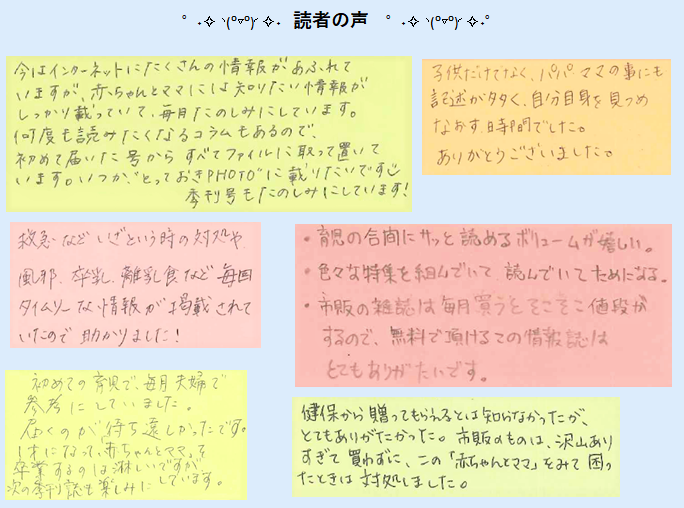 ˚ ˖✧ ◝(⁰▿⁰)◜ ✧˖ 読者の声 ˚ ˖✧ ◝(⁰▿⁰)◜ ✧˖˚
今はインターネットにたくさんの情報があふれて
いますが、赤ちゃんとママには知りたい情報が
しっかり載っていて、毎月たのしみにしています。
何度も読みたくなるコラムもあるので、
初めて届いた号からすべてファイルに取って置いて
います。いつか、"とっておきPHOTO"に載りたいです
季刊号もたのしみにしています!
子供だけでなく、パパママの事にも
記述が多く、自分自身を見つめ
なおす時間でした。
ありがとうございました。
救急などいざという時の対処や
風邪、卒乳、離乳食など毎回
タイムリーな情報が掲載されて
いたので助かりました!
・育児の合間にサッと読めるボリュームが嬉しい。
・色々な特集を組んでいて、読んでいてためになる。
・市販の雑誌は毎月買うとそこそこ値段が
するので、無料で頂けるこの情報誌は
とてもありがたいです。
初めての育児で、毎月夫婦で
参考にしていました。
届くのが待ち遠しかったです。
1才になって、赤ちゃんとママを
卒業するのは淋しいですが、
次の季刊誌も楽しみにしています。
健保から贈ってもらえるとは知らなかったが、
とてもありがたかった。市販のものは、沢山あり
すぎて買わずに、この「赤ちゃんとママ」をみて困っ
たときは対処しました。